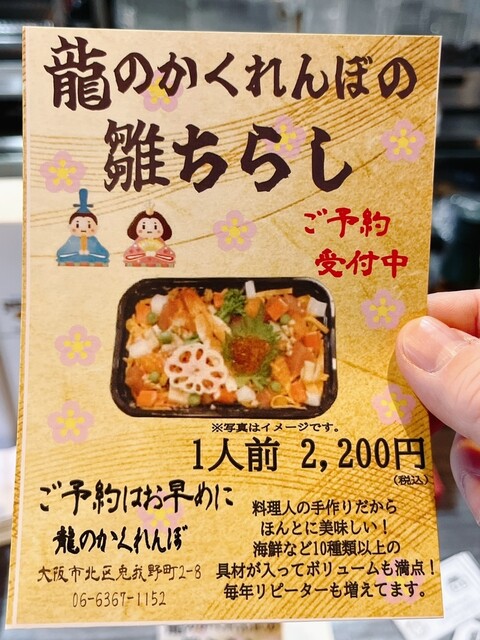 龍のかくれんぼの
雛ちらし
ご予約
受付中
※写真はイメージです。
1人前 2,200円
(税込)
ご予約はお早めに
龍のかくれんぼ
大阪市北区兎我野町2-8
06-6367-1152
料理人の手作りだから
ほんとに美味しい！
海鮮など10種類以上の
具材が入ってボリュームも満点！
毎年リピーターも増えてます。